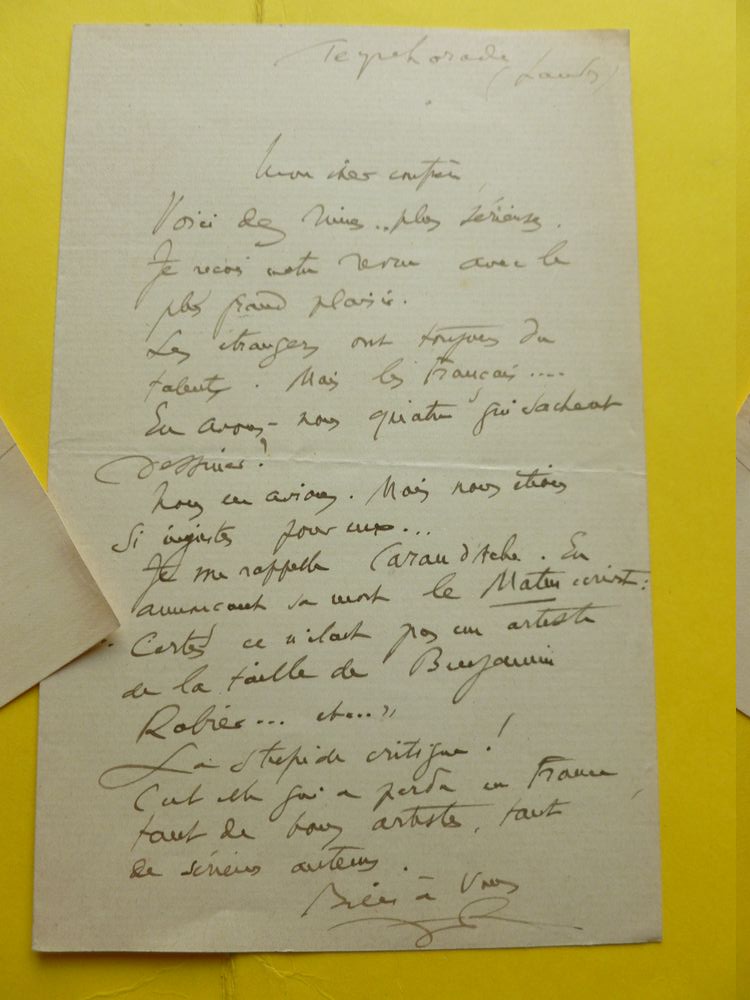 Peyrehorade
(Landes)
Mon cher confrère,
Voici des rimes.. plus sérieuses.
Je reçois votre revue avec le
plus grand plaisir.
Les étrangers ont toujours du
talent. Mais les Français....
En avons-nous quatre qui sachent
dessiner?
Nous en avions. Mais nous étions
si injustes pour eux...
Je me rappelle Caran d'Ache. En
annonçant sa mort le Matin écrivit:
"Certes ce n'était pas un artiste
de la taille de Benjamin
Rabier... et..."
La stupide critique!
C'est elle qui a perdu en France
tant de bons artistes, tant
de sérieux auteurs.
Bien à Vous